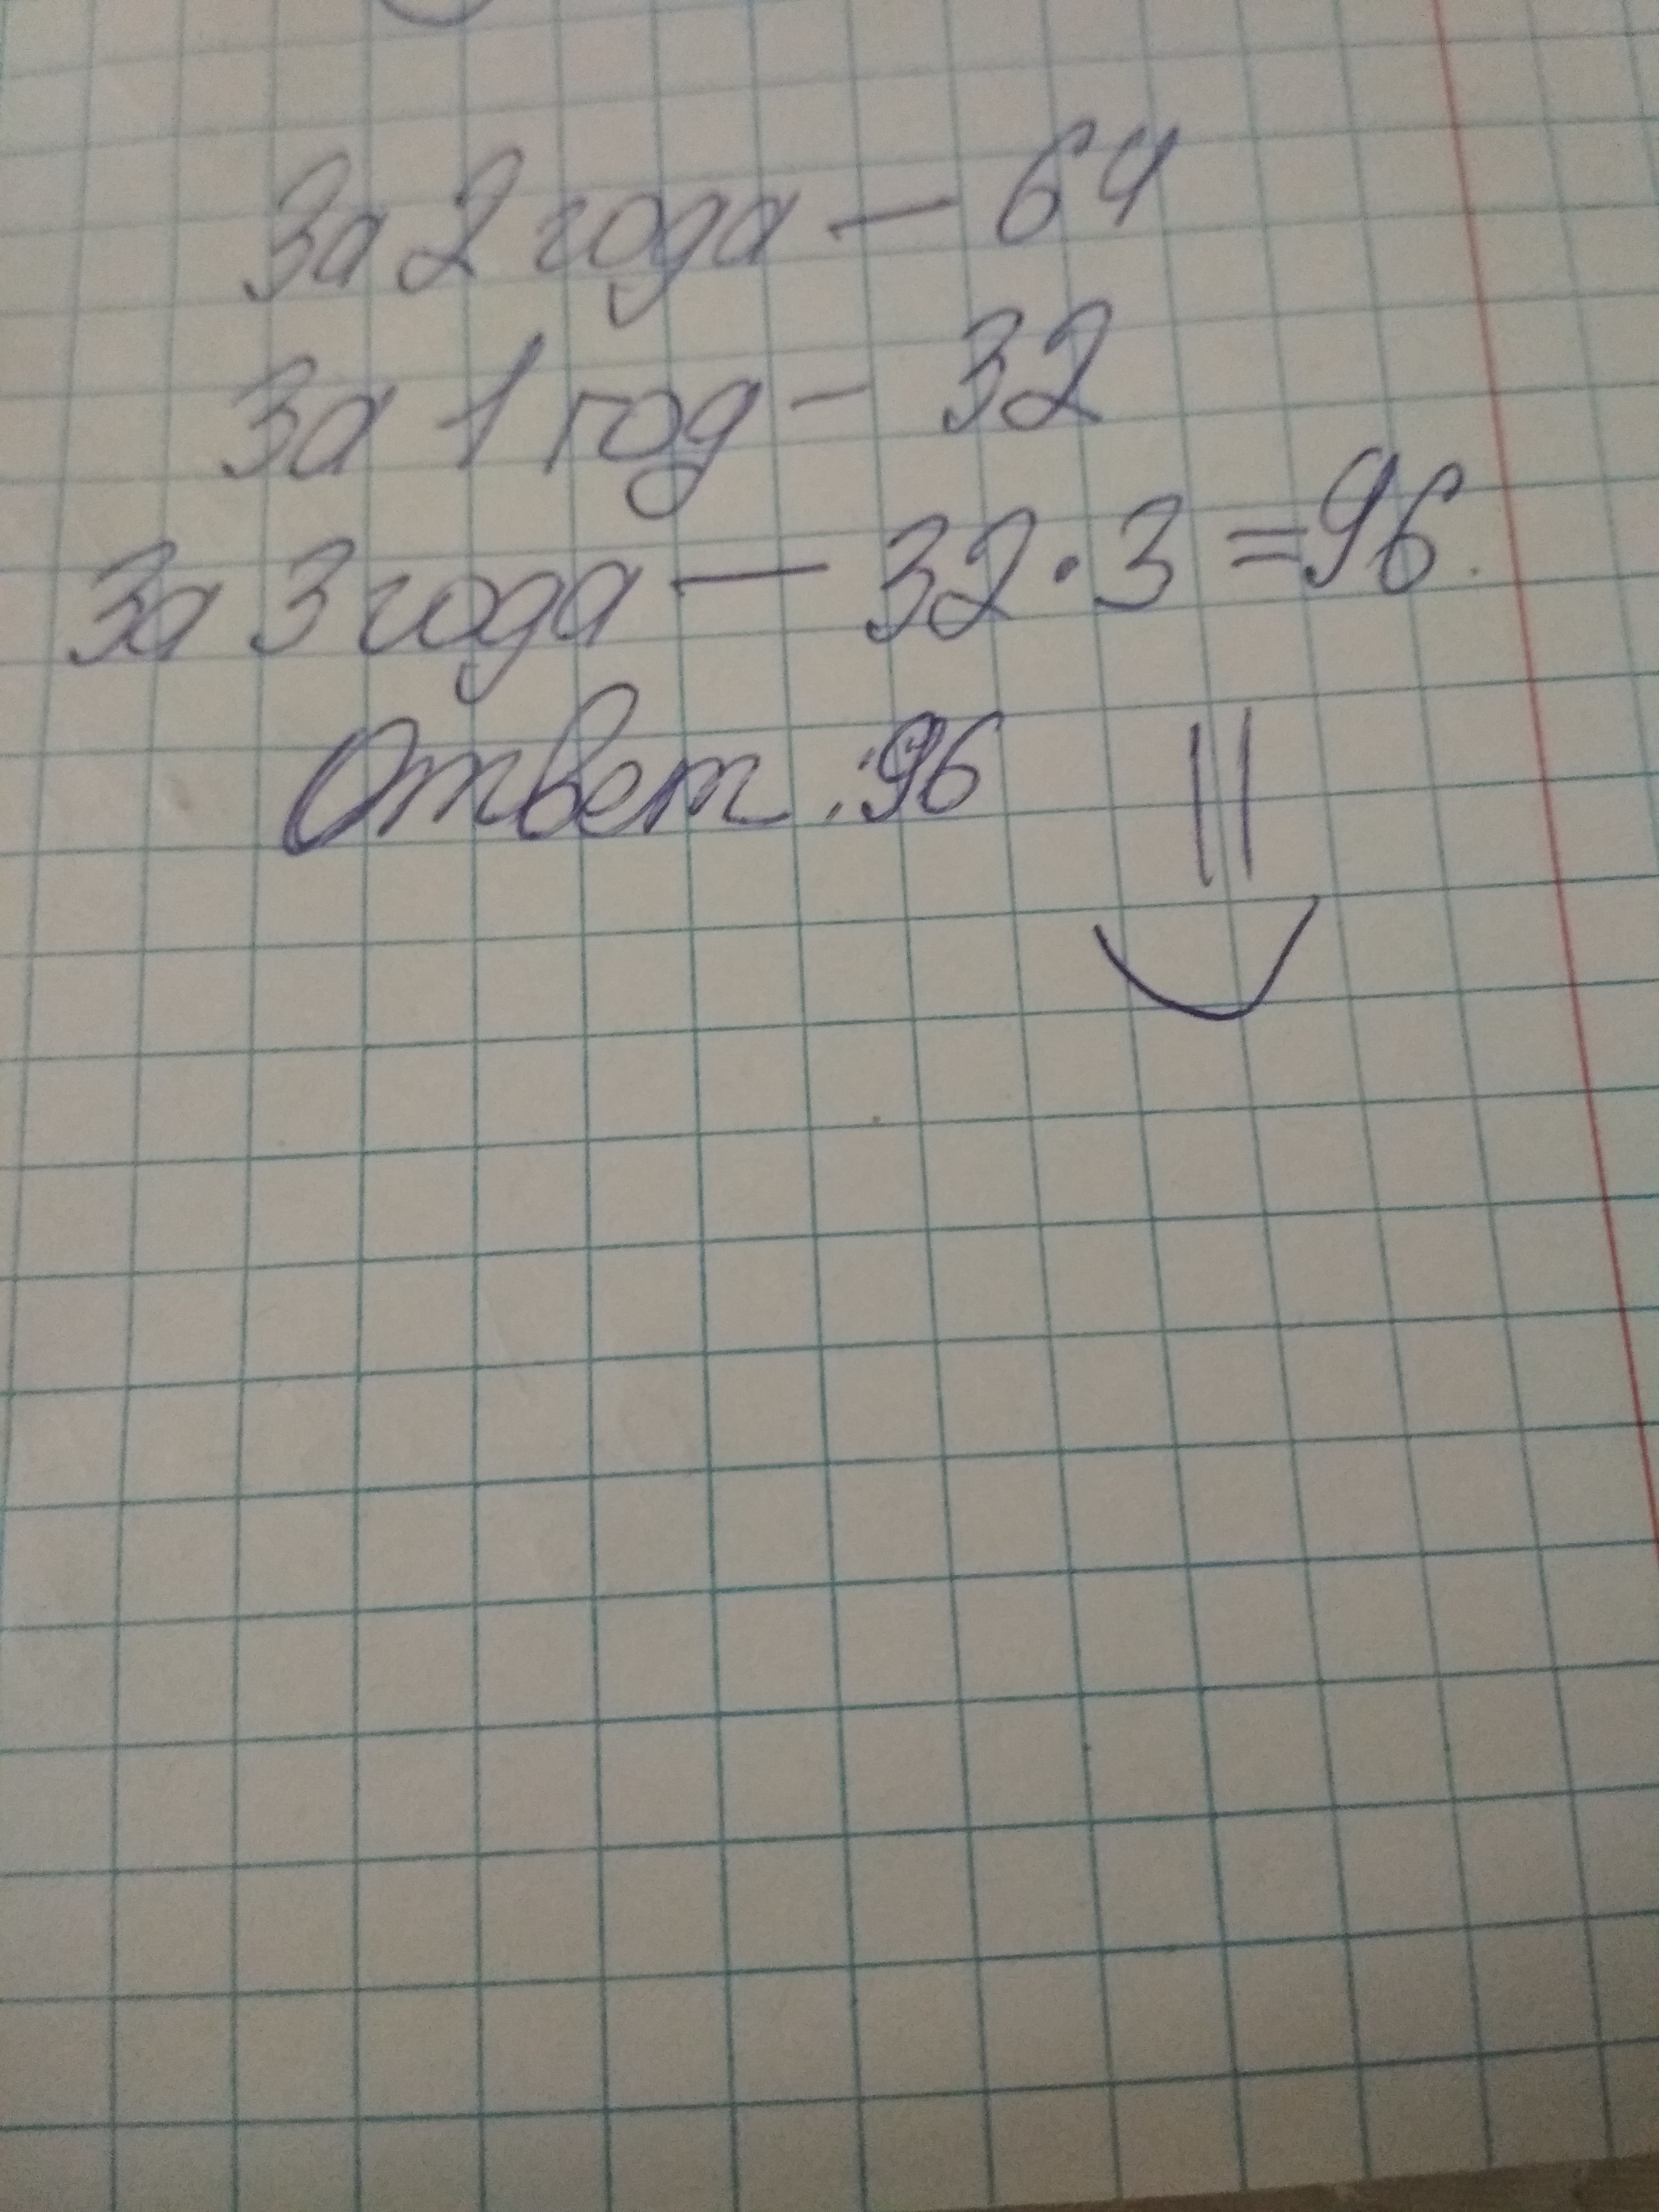 За 2 года — 64
За 1 год — 32
За 3 года — 32 · 3 = 96.
Ответ: 96